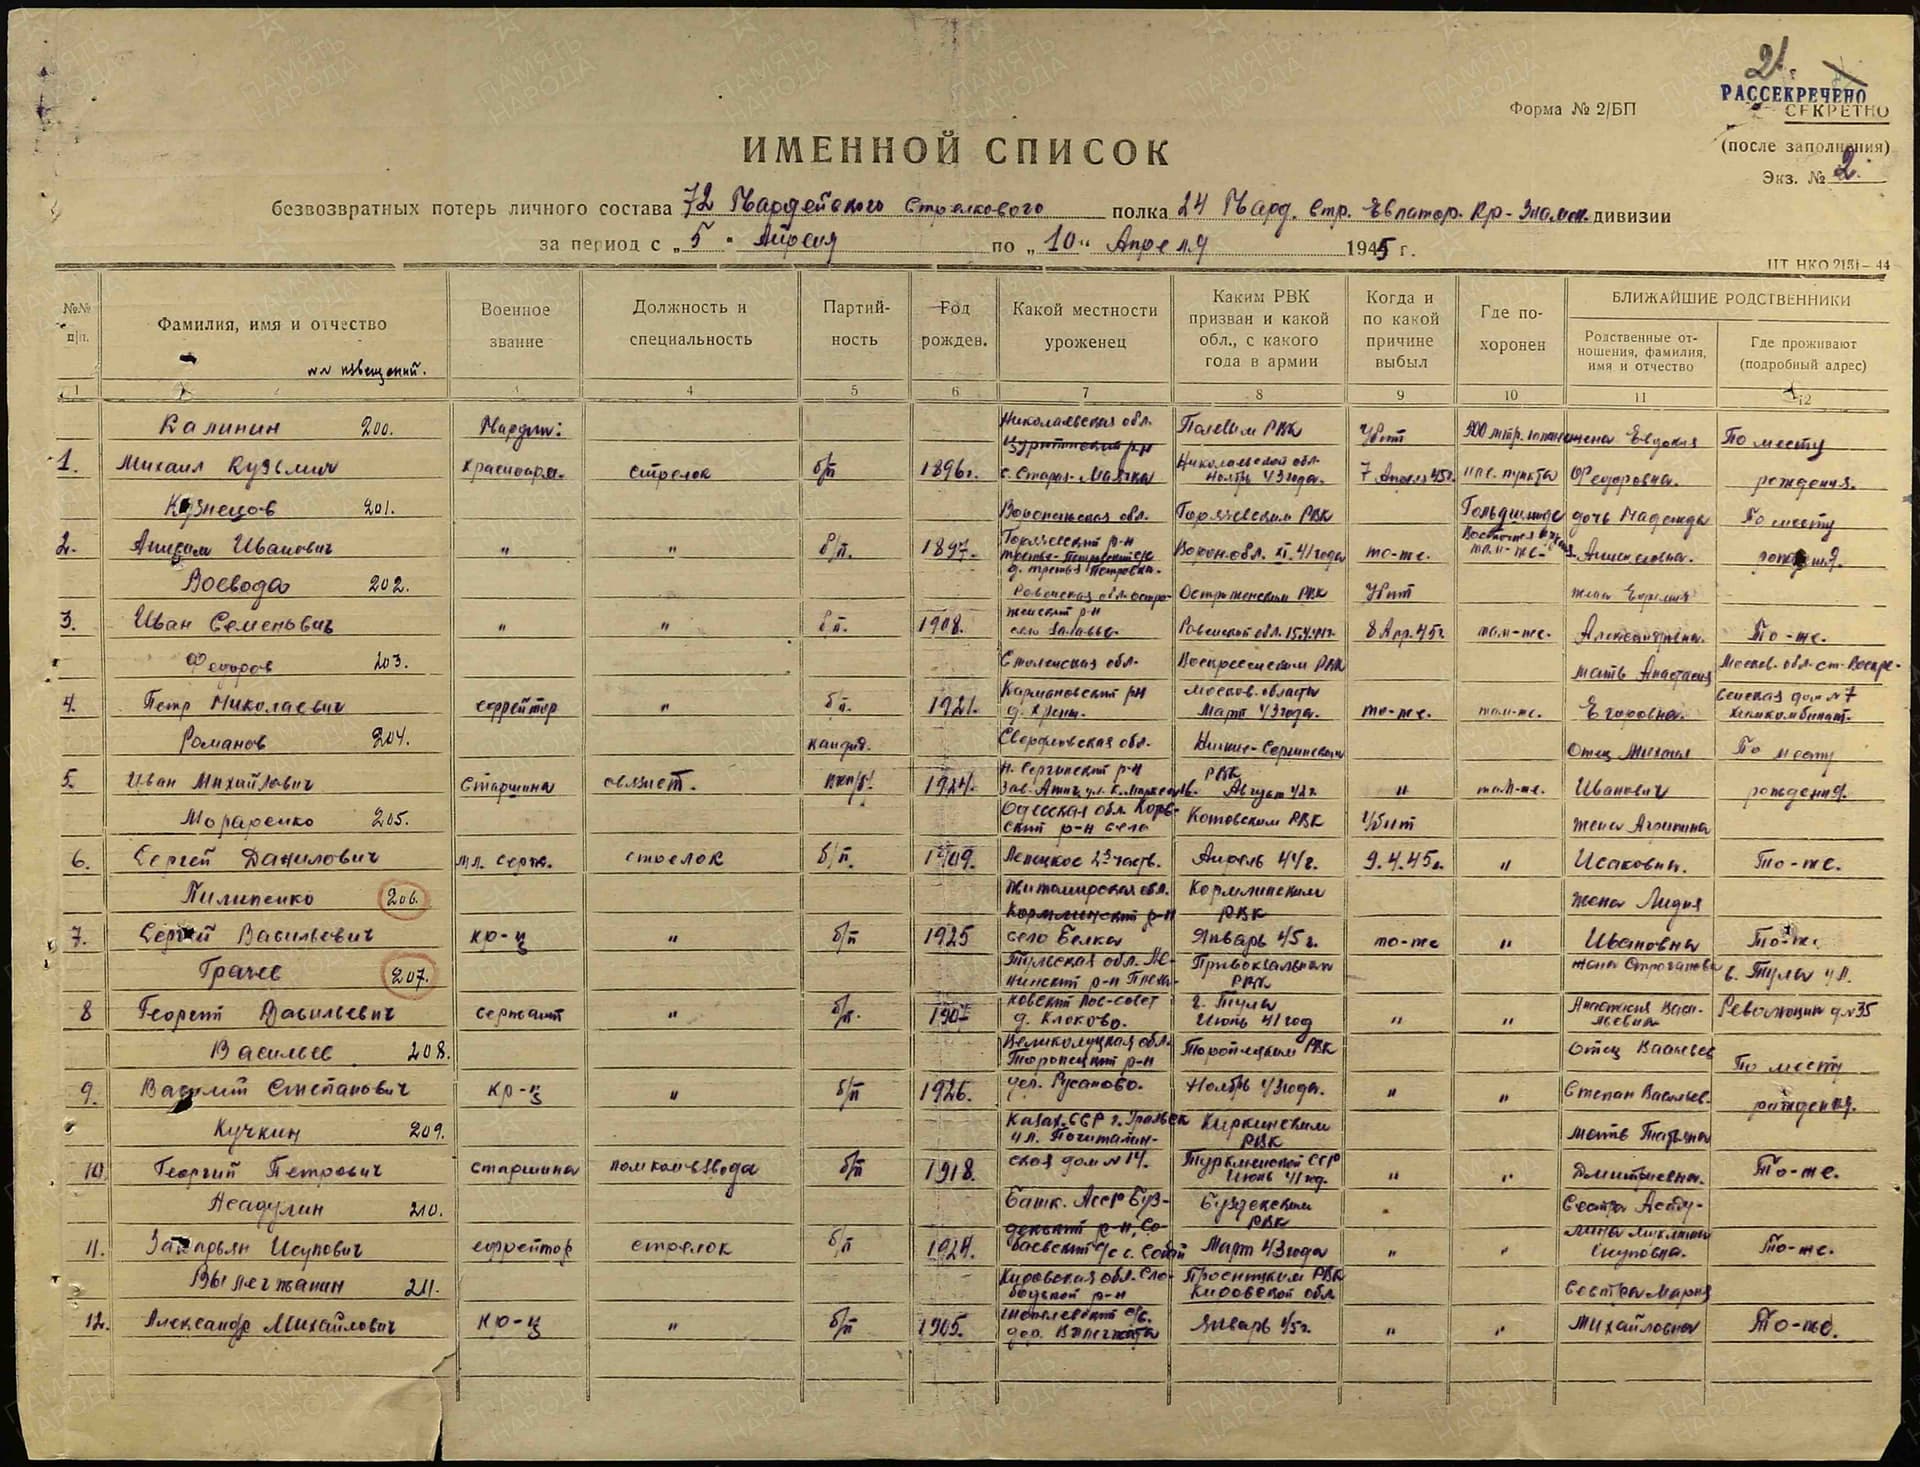 21.
РАССЕКРЕЧЕНО
Форма № 2/БП
СЕКРЕТНО
(после заполнения)
Экз. № 2.
ИМЕННОЙ СПИСОК
безвозвратных потерь личного состава 72 Гвардейского Стрелкового полка 24 Гвард. Стр. Евпатор. Кр-Знамен. дивизии
за период с „5" Апреля по „10" Апреля 1945 г.
ЦТ НКО 2151—44
№№ п/п.
Фамилия, имя и отчество
№№ извещений.
Военное звание
Должность и специальность
Партий-ность
Год рожден.
Какой местности уроженец
Каким РВК призван и какой обл., с какого года в армии
Когда и по какой причине выбыл
Где по-хоронен
БЛИЖАЙШИЕ РОДСТВЕННИКИ
Родственные от-ношения, фамилия, имя и отчество
Где проживают (подробный адрес)
1 2 3 4 5 6 7 8 9 10 11 12
Калинин 200. Гвардии: Николаевская обл. Полевым РВК Убит 900 мтр. жена Евдокия По месту
Цурюпинский р-н
1. Михаил Кузьмич Красноарм. стрелок б/п 1896г. с. Старая-Маячка Николаевской обл. Ноябрь 43 года. 7 Апреля 45г. нас. пункта Федоровна. рождения.
Кузнецов 201. Воронежская обл. Горячевским РВК Гольдшмиде дочь Надежда По месту
2. Анисим Иванович " " б/п. 1897. р-н д. третья Петровка. Ворон. обл. XI. 41 года то-же. Восточная там-же. Анисимовна. рождения.
Воевода 202. Ровенская обл. Остро- Острожским РВК Убит жена
3. Иван Семенович " " б/п. 1908. женский р-н село Ровенской обл. 8 Апр. 45г там-же. Александровна. То-же.
Федоров 203. Смоленская обл. Воскресенским РВК мать Анастасия Москов. обл. ст. Воскре-
4. Петр Николаевич ефрейтор " б/п. 1921. Кармановский рн д. Москов. области Март 43 года. то-же. там-же. Егоровна. сенская дом №7 химкомбинат.
Романов 204. кандид. Свердловская обл. Нижне-Сергинским РВК Отец Михаил По месту
5. Иван Михайлович Старшина связист. вкп/б/ 1924. Н. Сергинский р-н зав. Атиг ул. К. Маркса Август 42г. " там-же. Иванович рождения.
Мораренко 205. Одесская обл. Котов- Котовским РВК Убит жена Агрипина
ский р-н село
6. Сергей Данилович мл. серж. стрелок б/п. 1909. Липецкое 2я часть. Апрель 44г. 9.4.45г. " Исаковна. То-же.
Пилипенко 206. Житомирская обл. Кормлинским РВК жена Лидия
Кормлинский р-н
7. Сергей Васильевич кр-ц " б/п 1925 село Белка Январь 45г. то-же " Ивановна То-же.
Грачев 207. Тульская обл. Ле- Привокзальным РВК жена Строганова г. Тула ул.
нинский р-н
8 Георгий Васильевич сержант " б/п. пос-совет д. Клоково. г. Тула Июнь 41 год " " Анастасия Васи-льевна Революции д №35
Васильев 208. Великолуцкая обл. Торопецким РВК Отец Васильев По месту
Торопецкий р-н
9. Василий Степанович кр-ц " б/п 1926. дер. Русаново. Ноябрь 43 года. " " Степан Васильев. рождения.
Кучкин 209. Казах. ССР г. Уральск Киркинским РВК мать Татьяна
ул. Почиталин-
10 Георгий Петрович старшина помкомвзвода б/п 1918. ская дом № 14. Туркменской ССР Июнь 41 год. " " Дмитриевна. То-же.
Асадулин 210. Башк. АССР Буз- Буздекским РВК Сестра
декский р-н, Со-
11. Исупович ефрейтор стрелок б/п 1924. баевский с/с с. Собай Март 43 года " " Исуповна. То-же.
Вылегжанин 211. Кировская обл. Сло- Просницким РВК Кировской обл. Сестра Мария
бодской р-н
12. Александр Михайлович кр-ц " б/п 1905. с/с. дер. Январь 45г. " " Михайловна То-же.